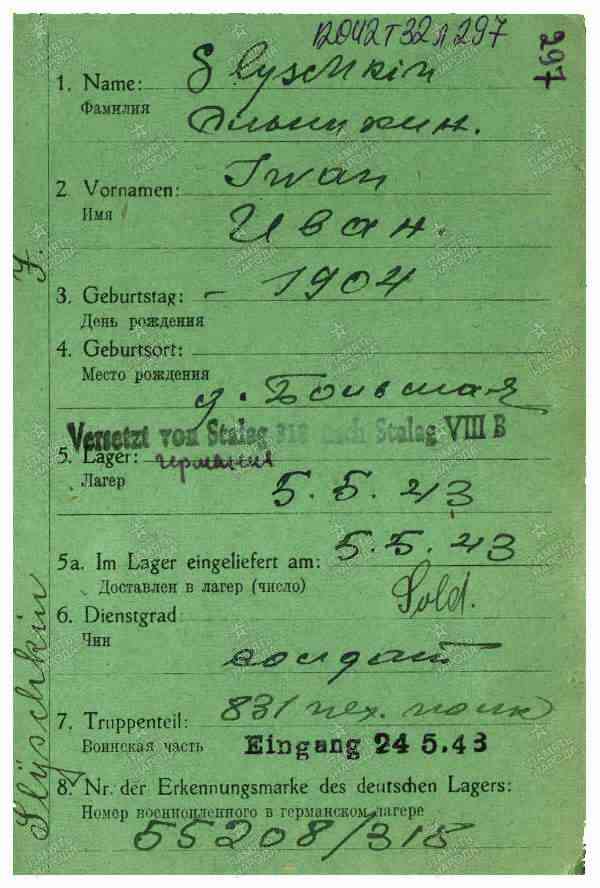 297
1. Name: Slyschkin
Фамилия
Слышкин.
2. Vornamen: Iwan
Имя
Иван.
3. Geburtstag: - 1904
День рождения
4. Geburtsort:
Место рождения
д. Большая
Versetzt von Stalag 318 nach Stalag VIII B
5. Lager: германия
Лагер
5.5.43
5a. Im Lager eingeliefert am: 5.5.43
Доставлен в лагер (число)
Sold.
6. Dienstgrad
Чин
солдат
7. Truppenteil: 831 пех. полк
Воинская часть
Eingang 24 5.43
8. Nr. der Erkennungsmarke des deutschen Lagers:
Номер военнопленного в германском лагере
55208/318
Slÿschkin J.